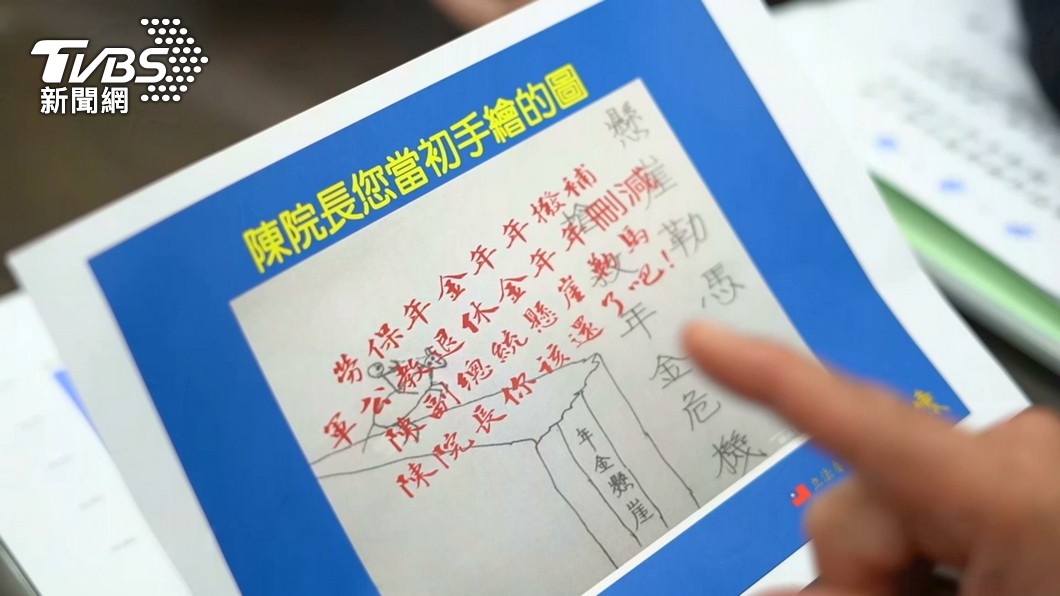 TVBS
新聞網
陳院長您當初手繪的圖
勞保年金年年撥補
軍公教退休金年年刪減
陳副總統懸崖勒馬
陳院長你該還了吧!
懸崖勒馬
搶救年金危機
年金懸崖